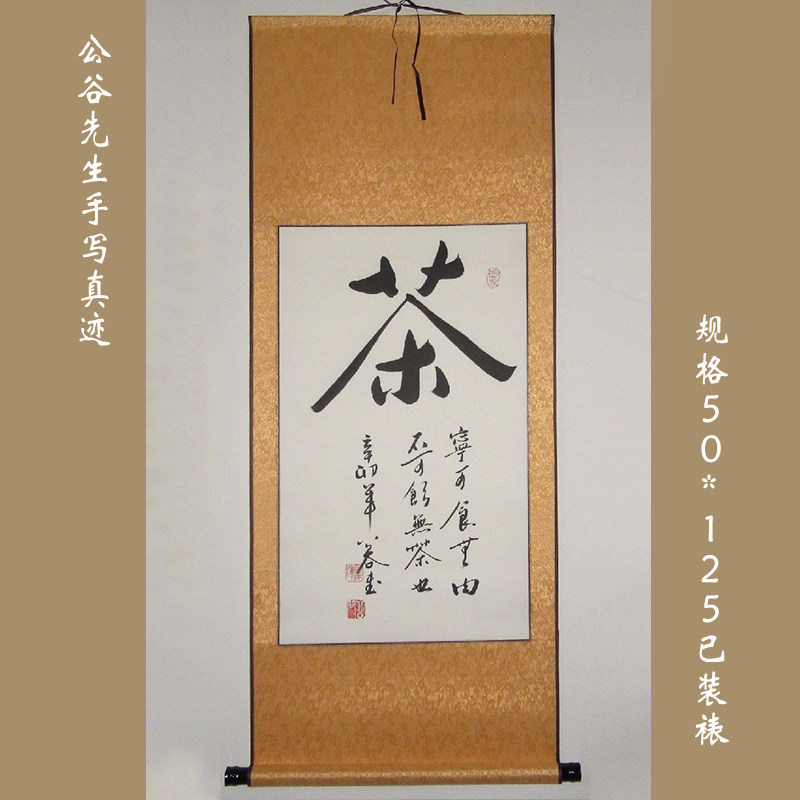 公谷先生手写真迹
茶
寧可食無肉
不可飲無茶也
辛卯年公谷書
规格50*125已装裱